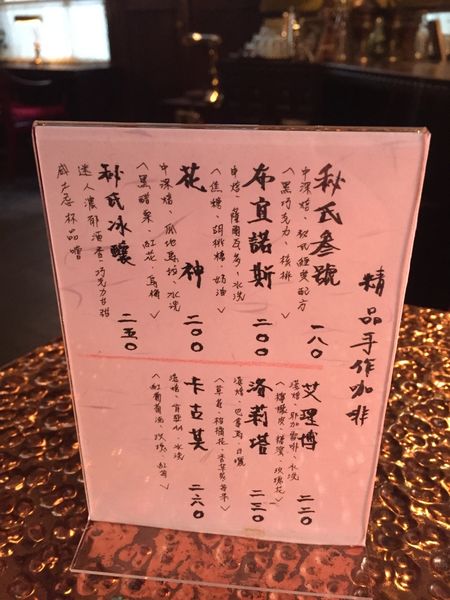 精品手作咖啡
秋氏叁號 一八〇
中深焙、秋氏經典配方
〈黑巧克力、核桃〉
布宜諾斯 二〇〇
中焙、薩爾瓦多、水洗
〈焦糖、胡桃糖、奶油〉
花神 二〇〇
中深焙、瓜地馬拉、水洗
〈黑醋栗、紅花、烏梅〉
秋氏冰釀 二五〇
迷人濃郁酒香、巧克力甘甜
威士忌杯品嚐
艾理博 二二〇
淺焙、耶加雪菲、水洗
〈檸檬皮、蜂蜜、玫瑰花〉
洛莉塔 二三〇
淺焙、巴拿馬、日曬
卡立莫 二六〇
淺焙、肯亞AA、水洗